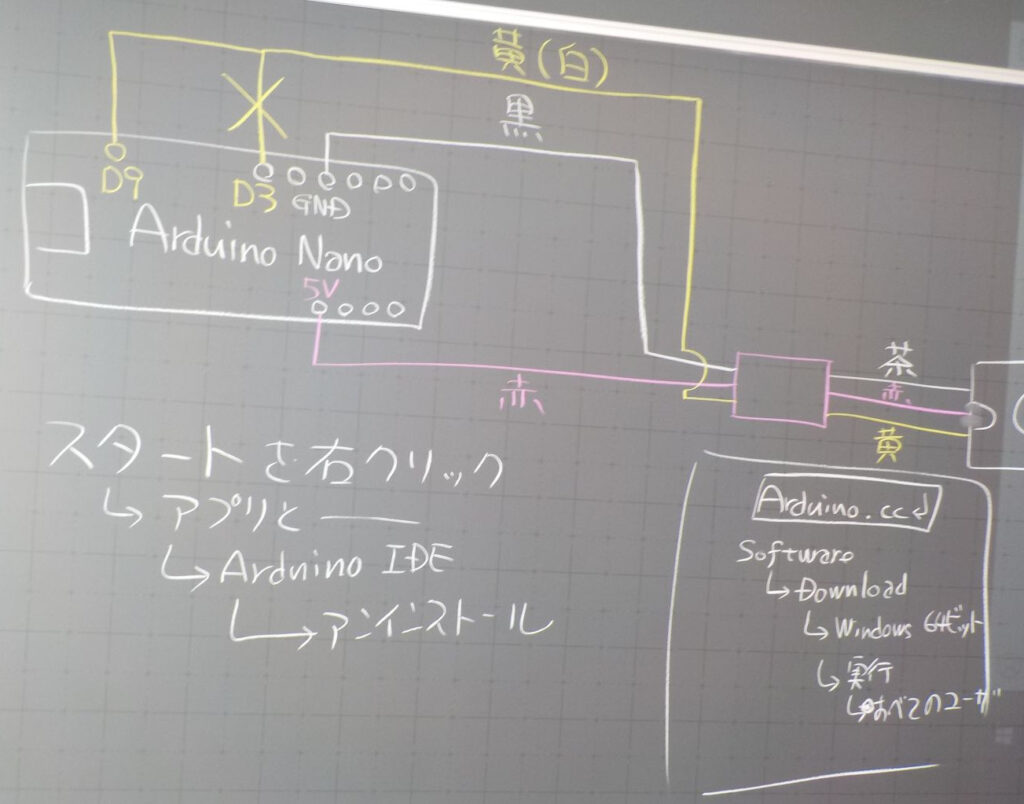 黄(白)
黒
D9
D3
GND
Arduino Nano
5V
赤
茶
赤
黄
スタートを右クリック
↳ アプリと ——
↳ Arduino IDE
↳ アンインストール
Arduino.cc
Software
↳ Download
↳ Windows 64ビット
↳ 実行
↳ すべてのユーザ